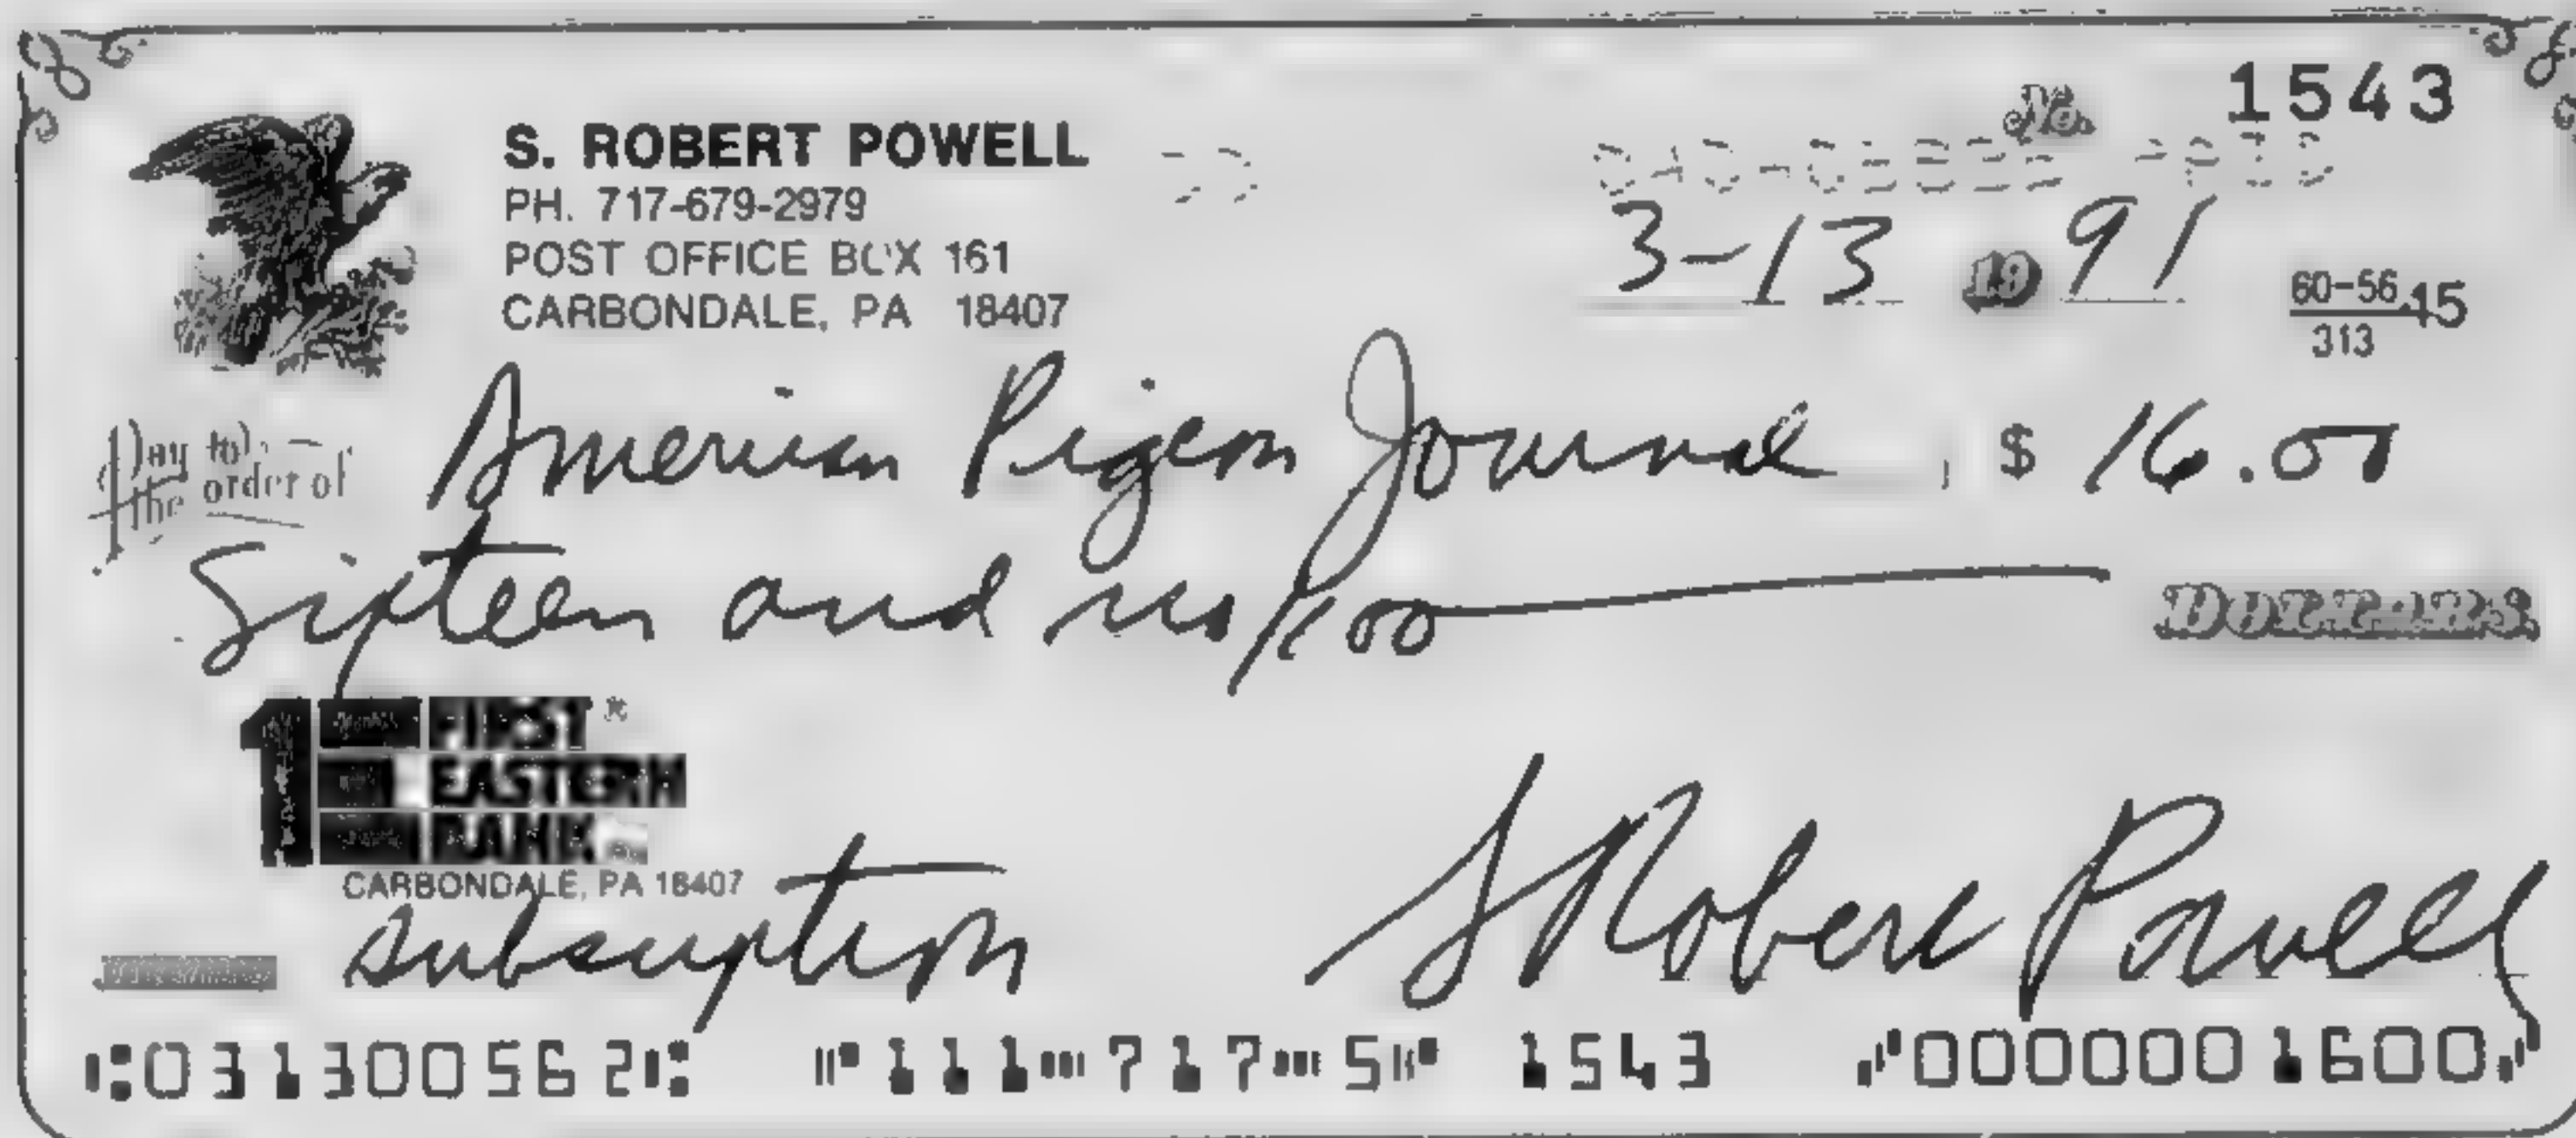 No. 1543
S. ROBERT POWELL
PH. 717-679-2979
POST OFFICE BOX 161
CARBONDALE, PA 18407
3-13 19 91
60-56 15
313
Pay to the order of American Pigeon Journal $ 16.00
Sixteen and no/100 DOLLARS
1 FIRST EASTERN BANK ®
CARBONDALE, PA 18407
subscription S Robert Powell
⑆031300562⑆ ⑈111⑉717⑉5⑈ 1543 ⑈0000001600⑈